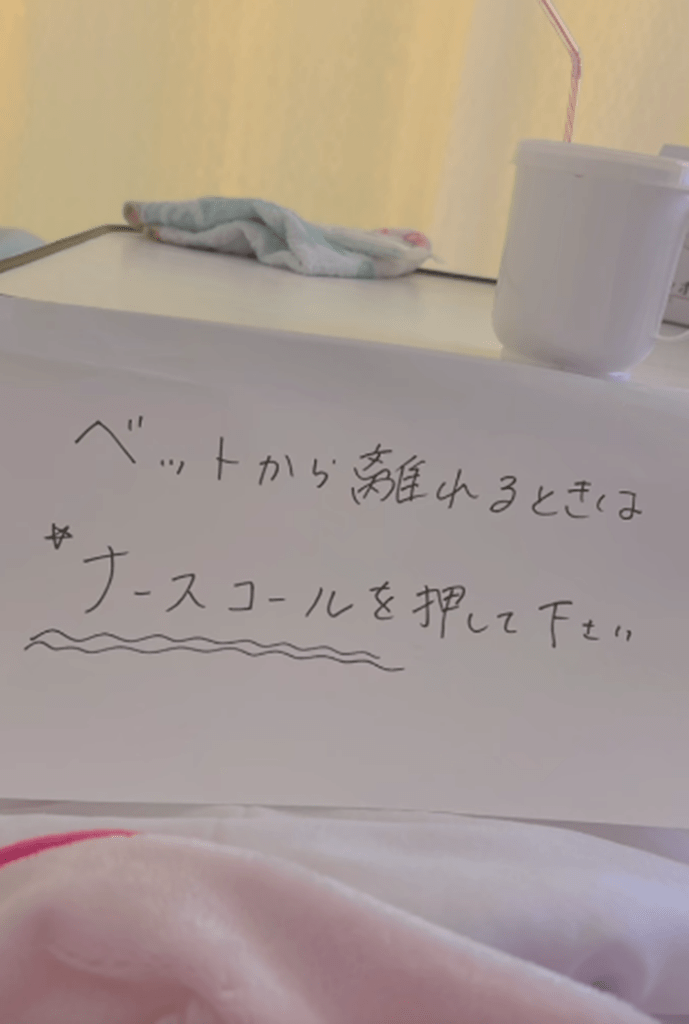 ベットから離れるときは
☆ナースコールを押して下さい